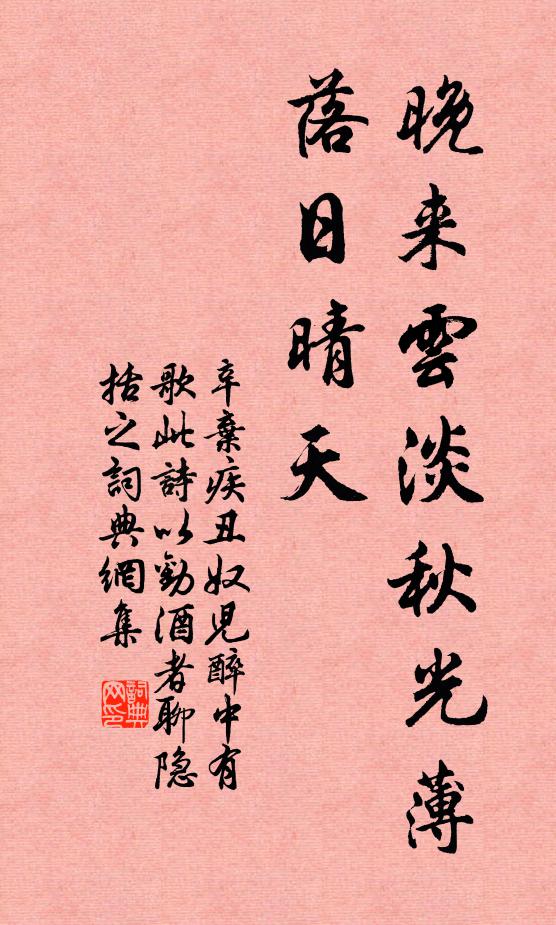 晚来雲淡秋光薄
落日晴天
辛棄疾丑奴兒醉中有
歌此詩以勸酒者聊隐
括之詞典網集
詞典
网印